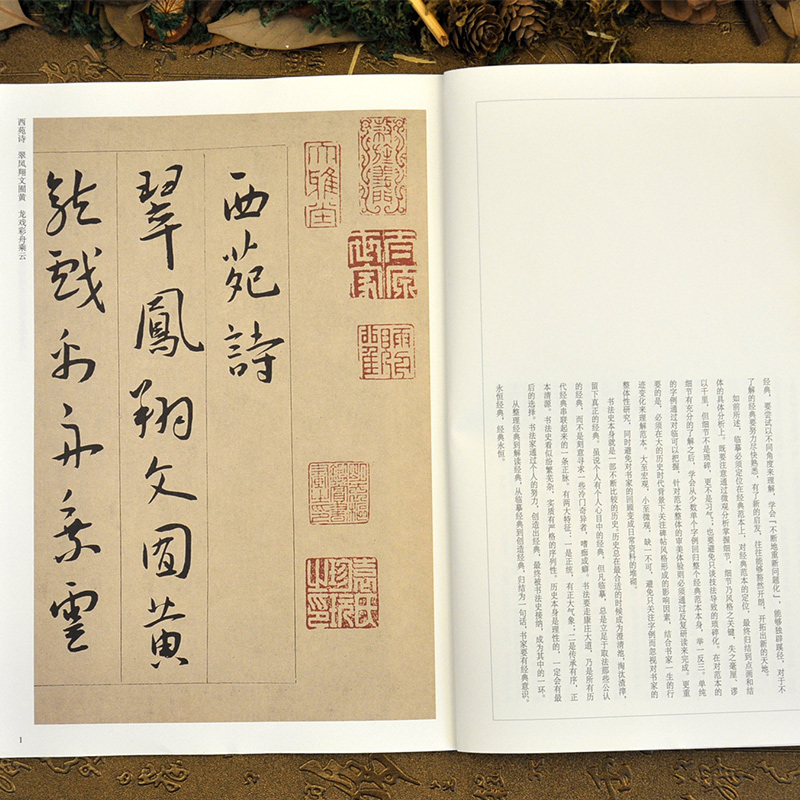 经典，要尝试以不同角度来理解，学会「不断地重新问题化」，能够独辟蹊径，对于不
了解的经典要努力尽快熟悉，有了新的启发，往往能够豁然开朗，开拓出新的天地。
如前所述，临摹必须定位在经典范本上，对经典范本的定位，最终归结到点画和结
体的具体分析上。既要注意通过微观分析掌握细节，细节乃风格之关键，失之毫厘，谬
以千里，但细节不是琐碎，更不是习气；也要避免只谈技法导致的琐碎化。在对范本的
细节有充分的了解之后，学会从少数单个字例回归整个经典范本本身，举一反三。单纯
的字例通过对临可以把握，针对范本整体的审美体验则必须通过反复研读来完成。更重
要的是，必须在大的历史时代背景下关注碑帖风格形成的影响因素，结合书家一生的行
迹变化来理解范本。大至宏观，小至微观，缺一不可，避免只关注字例而忽视对书家的
整体性研究，同时避免对书家的回顾变成日常资料的堆砌。
书法史本身就是一部不断比较的历史，历史总在最合适的时候成为澄清池，淘汰渣滓，
留下真正的经典。虽说个人有个人心目中的经典，但凡临摹，总是立足于取法那些公认
的经典，而不是刻意寻求一些冷门奇异者，嗜痂成癖。书法要走康庄大道，乃是所有历
代经典串联起来的一条正脉。有两大特征：一是正统，有正大气象；二是传承有序，正
本清源。书法史看似纷繁芜杂，实质有严格的序列性。历史本身是理性的，一定会有最
后的选择。书法家通过个人的努力，创造出经典，最终被书法史接纳，成为其中的一环。
从整理经典到解读经典，从临摹经典到创造经典，归结为一句话，书家要有经典意识。
永恒经典，经典永恒。
大雅堂
西苑詩
翠鳳翔文囿黄
龍戲彩舟乘雲
西苑诗　翠凤翔文囿黄　龙戏彩舟乘云
1